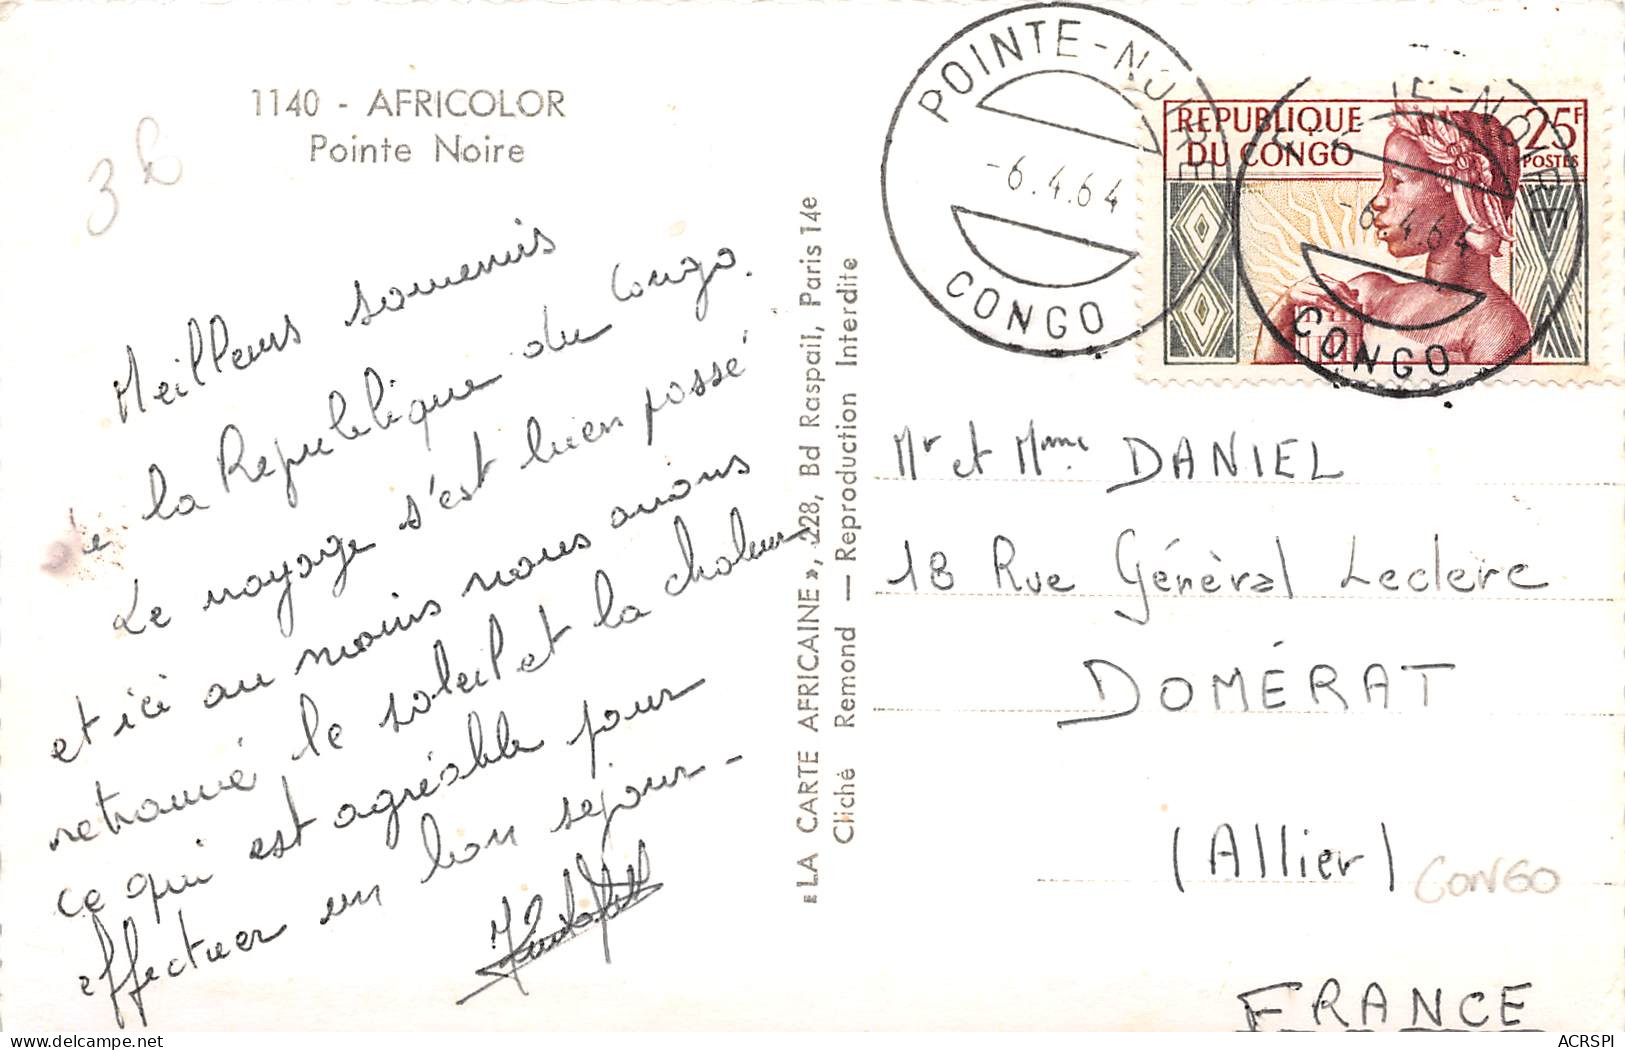 1140 - AFRICOLOR
Pointe Noire
Meilleurs souvenirs
de la Republique du Congo.
Le voyage s'est bien passé
et ici au moins nous avons
retrouvé le soleil et la chaleur
ce qui est agréable pour
effectuer un bon sejour -
«LA CARTE AFRICAINE», 228, Bd Raspail, Paris 14e
Cliché Remond — Reproduction Interdite
POINTE-NOIRE
-6.4.64
CONGO
REPUBLIQUE
DU CONGO
25F
POSTES
POINTE-NOIRE
-6.4.64
CONGO
Mr et Mme DANIEL
18 Rue Général Leclerc
DOMÉRAT
(Allier)
CONGO
FRANCE
ACRSPI